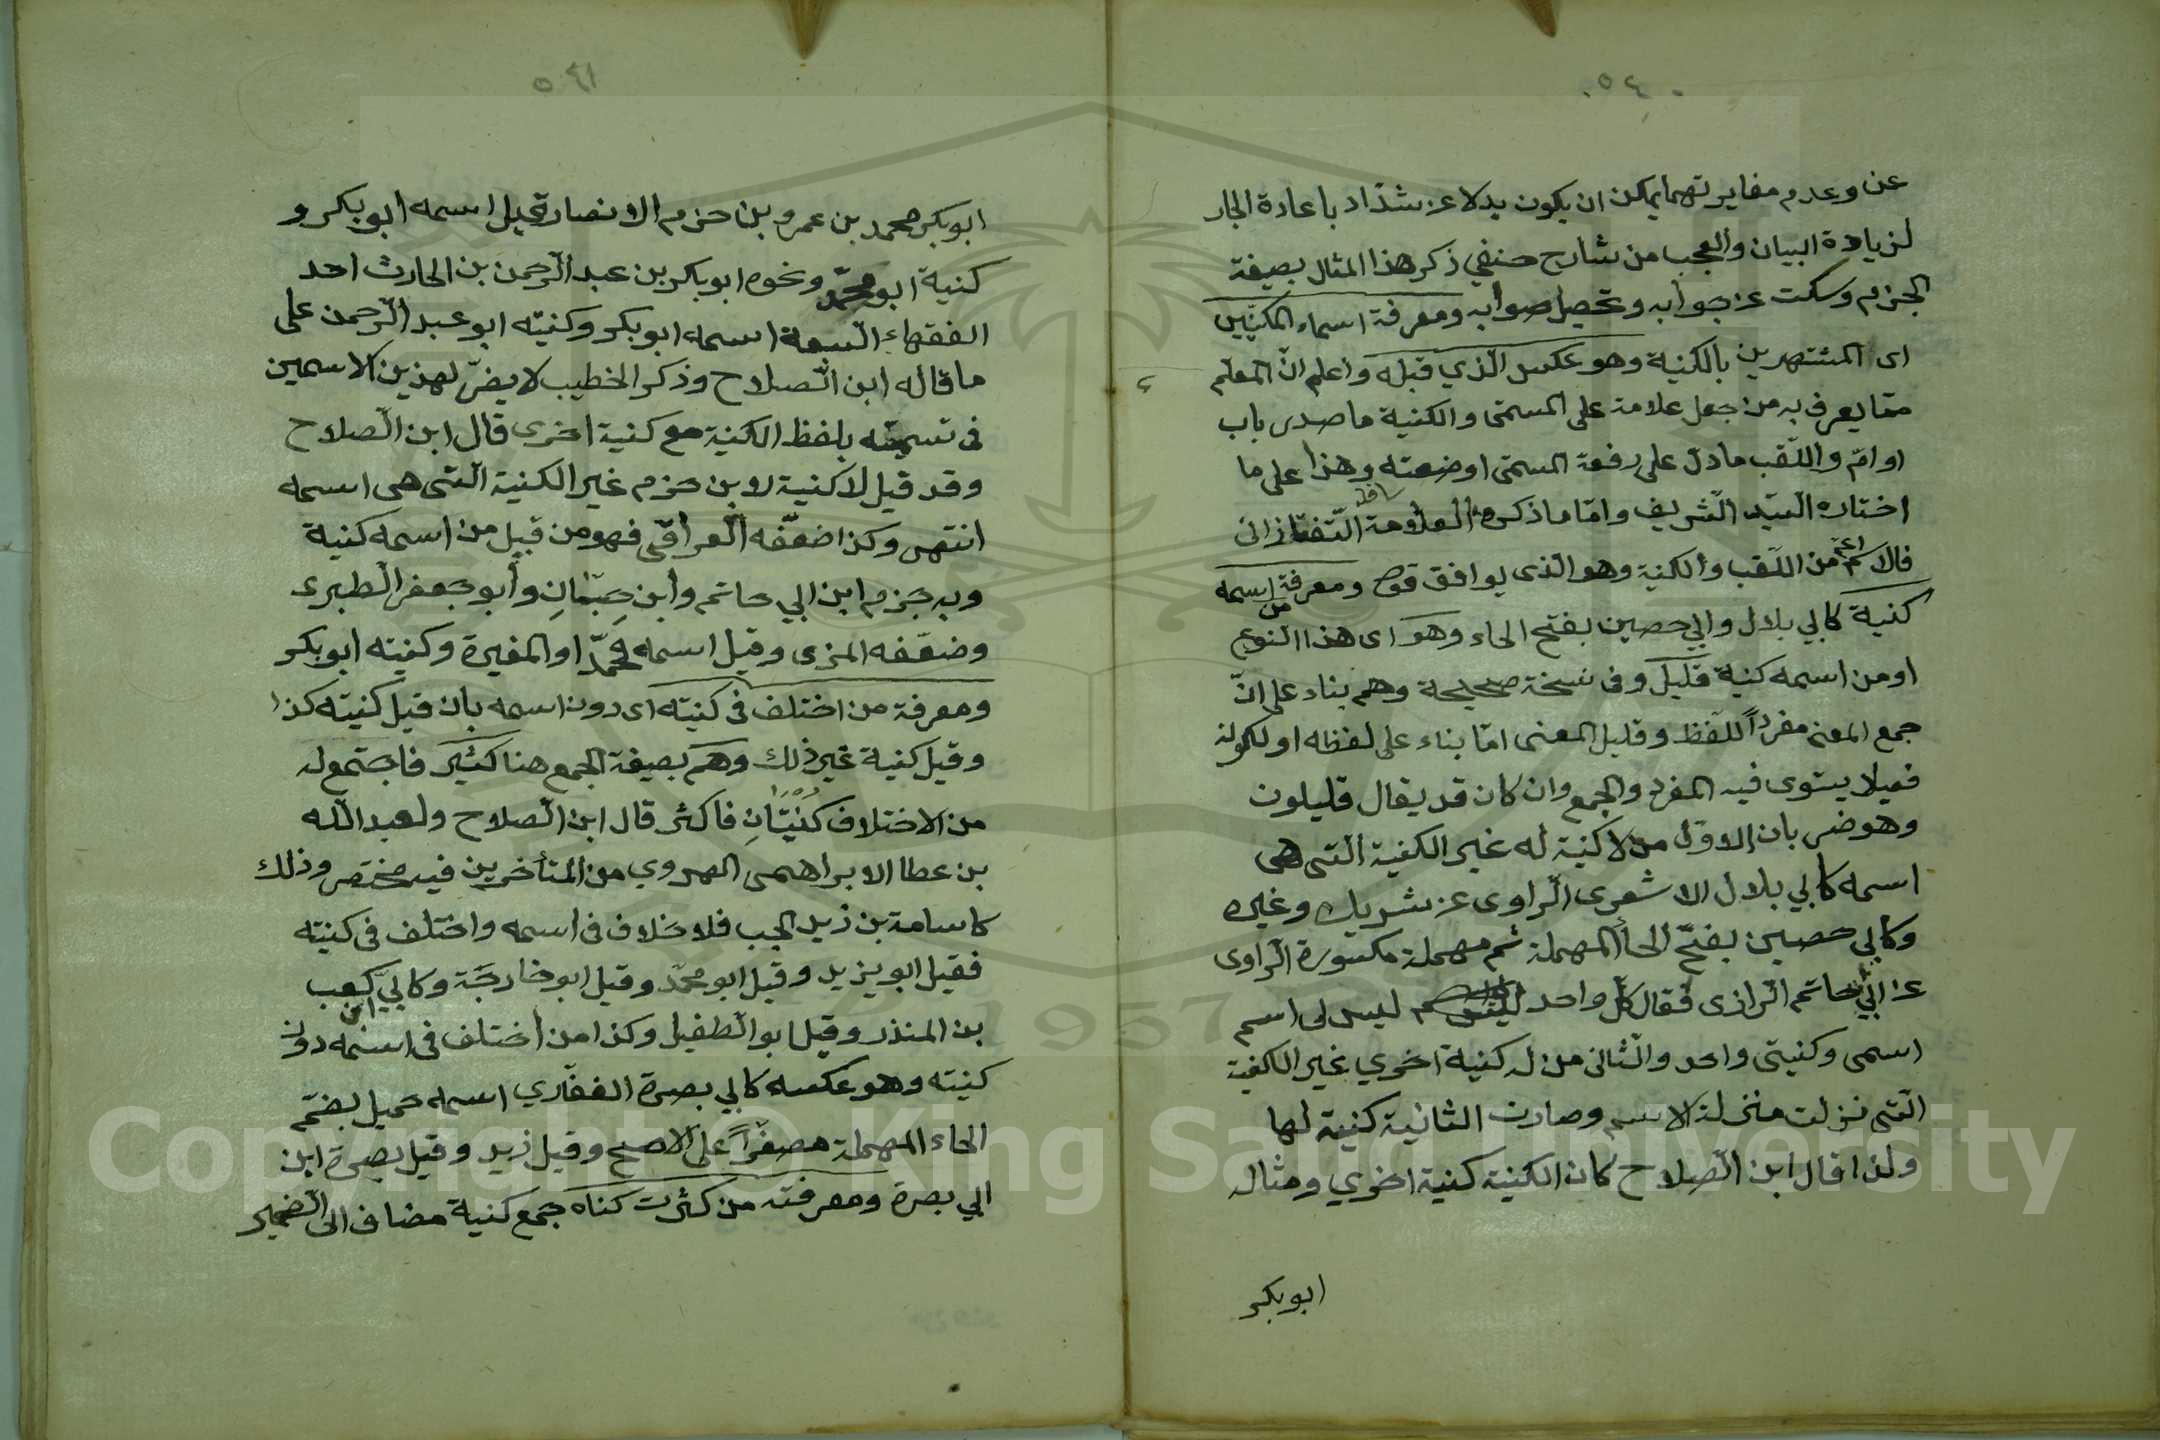 ٥٤٠
عن وعدم مغايرتهما يمكن ان يكون بدلا عن شدّاد باعادة الجار
لزيادة البيان والعجب من شارح حنفي ذكر هذا المثال بصيغة
الجزم وسكت عن جوابه وتحصيل صوابه ومعرفة اسماء المكنيين
اى المشتهرين بالكنية وهو عكس الّذي قبله واعلم انّ المعلم
مما يعرف به من جعل علامة على المسمّى والكنية ما صدر باب
او امّ واللّقب ما دلّ على رفعة المسمّى او ضعته وهذا على ما
اختاره السّيّد الشّريف وامّا ما ذكره العلّامة التّفتازانى
فالاسم اعمّ من اللّقب والكنية وهو الّذى يوافق قوله ومعرفة من اسمه
كنية كابي بلال وابي حصين بفتح الحاء وهو اى هذا النوع
او من اسمه كنية قليل وفى نسخة صحيحة وهم بناء على انّ
جمع المعنى مفرداً للّفظ وقليل المعنى امّا بناء على لفظه او لكونه
فعيلا يستوى فيه المفرد والجمع وان كان قد يقال قليلون
وهو ضربان الاوّل من لا كنية له غير الكنية الّتى هى
اسمه كابي بلال الاشعرى الرّاوى عن شريك وغيره
وكابي حصين بفتح الحاء المهملة ثم مهملة مكسورة الرّاوى
عن ابي حاتم الرّازى فقال كلّ واحد ليس لى اسم
اسمى وكنيتى واحد والثّانى من له كنية اخرى غير الكنية
الّتى نزلت منزلة الاسم وصارت الثانية كنية لها
ولذا قال ابن الصّلاح كان الكنية كنية اخرى ومثاله
ابوبكر
٥٤١
ابوبكر محمد بن عمرو بن حزم الانصارى قيل اسمه ابوبكر و
كنية ابو محمّد ونحوه ابوبكر بن عبد الرّحمن بن الحارث احد
الفقهاء السّبعة اسمه ابوبكر وكنيته ابو عبد الرّحمن على
ما قاله ابن الصّلاح وذكر الخطيب لا يضرّ لهذين الاسمين
فى تسميته بلفظ الكنية مع كنية اخرى قال ابن الصّلاح
وقد قيل لا كنية لابن حزم غير الكنية الّتى هى اسمه
انتهى وكذا ضعّفه العراقى فهو من قبيل من اسمه كنية
وبه جزم ابن ابي حاتم وابن حِبّان وأبو جعفر الطّبرى
وضعّفه المزى وقيل اسمه محمّد او المغيرة وكنيته ابوبكر
ومعرفة من اختلف فى كنيته اى دون اسمه بان قيل كنيته كذا
وقيل كنية غير ذلك وهم بصيغة الجمع هنا كثير فاجتمع له
من الاختلاف كُنْيَتَانِ فاكثر قال ابن الصّلاح ولعبد اللّه
بن عطا الابراهيمى الهروي من المتأخرين فيه مختصر وذلك
كاسامة بن زيد الحب فلا خلاف فى اسمه واختلف فى كنيته
فقيل ابو يزيد وقيل ابو محمّد وقيل ابو خارجَة وكابي كعب
بن المنذر وقيل ابو الطفيل وكذا من اختلف فى اسمه دون
كنيته وهو عكسه كابي بصرة الغفّاري اسمه حميل بضمّ
الحاء المهملة مصغّراً على الاصح وقيل زيد وقيل بصرة ابن
ابي بصرة ومعرفته من كثرت كناه جمع كنية مضاف الى الضمير
Copyright © King Saud University
1957